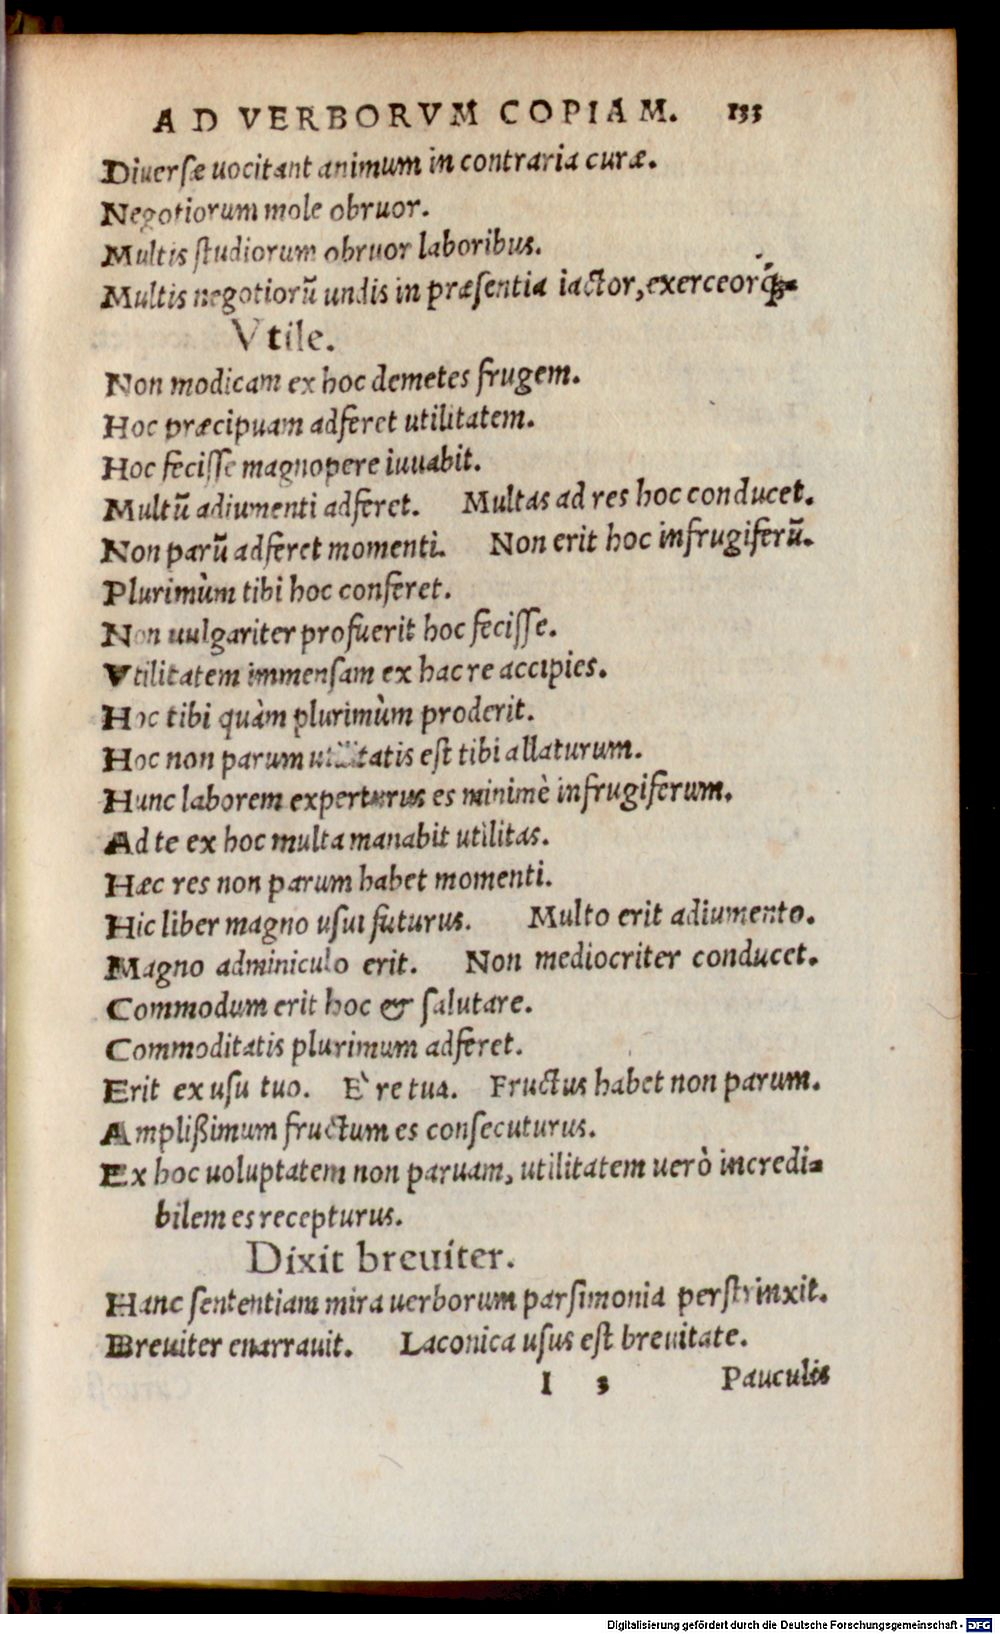 AD VERBORVM COPIAM. 133
Diuersæ uocitant animum in contraria curæ.
Negotiorum mole obruor.
Multis studiorum obruor laboribus.
Multis negotiorũ undis in præsentia iactor, exerceorq́;
Vtile.
Non modicam ex hoc demetes frugem.
Hoc præcipuam adferet utilitatem.
Hoc fecisse magnopere iuuabit.
Multũ adiumenti adferet. Multas ad res hoc conducet.
Non parũ adferet momenti. Non erit hoc infrugiferũ.
Plurimùm tibi hoc conferet.
Non uulgariter profuerit hoc fecisse.
Vtilitatem immensam ex hac re accipies.
Hoc tibi quàm plurimùm proderit.
Hoc non parum utilitatis est tibi allaturum.
Hunc laborem experturus es minimè infrugiferum.
Ad te ex hoc multa manabit utilitas.
Hæc res non parum habet momenti.
Hic liber magno usui futurus. Multo erit adiumento.
Magno adminiculo erit. Non mediocriter conducet.
Commodum erit hoc & salutare.
Commoditatis plurimum adferet.
Erit ex usu tuo. È re tua. Fructus habet non parum.
Amplißimum fructum es consecuturus.
Ex hoc uoluptatem non paruam, utilitatem uerò incredi-
bilem es recepturus.
Dixit breuiter.
Hanc sententiam mira uerborum parsimonia perstrinxit.
Breuiter enarrauit. Laconica usus est breuitate.
I 3 Pauculis
Digitalisierung gefördert durch die Deutsche Forschungsgemeinschaft - DFG